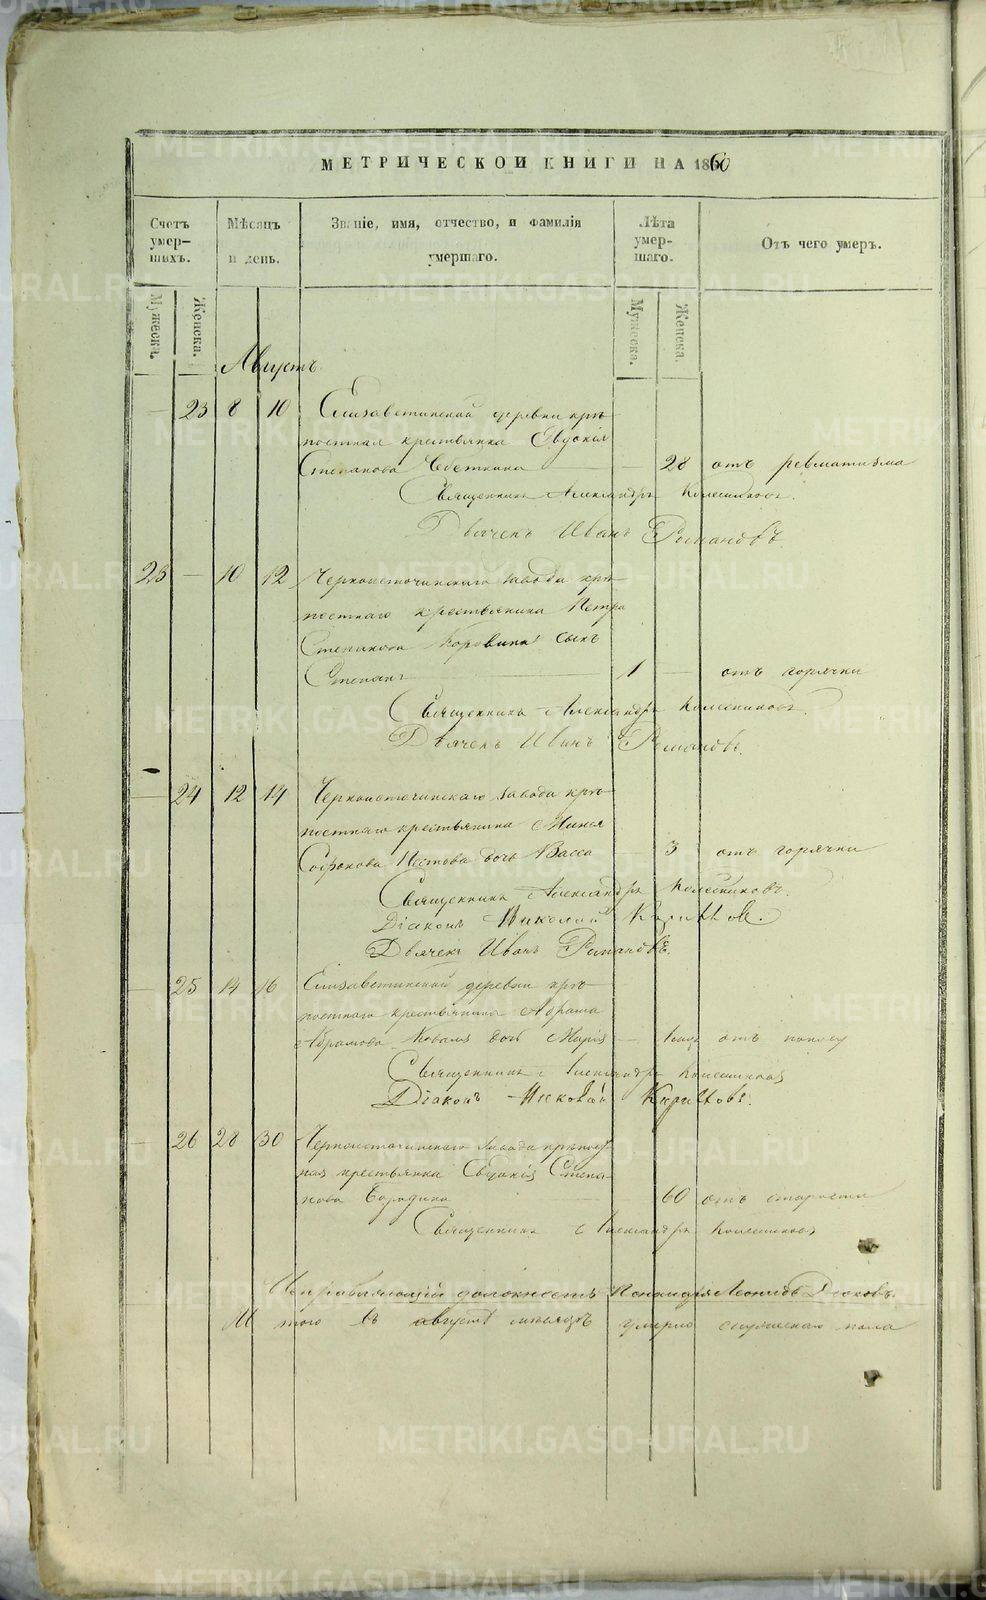 МЕТРИЧЕСКОЙ КНИГИ НА 1860
Счетъ умер-шихъ.
Мѣсяцъ и день.
Званіе, имя, отчество, и фамилія умершаго.
Лѣта умер-шаго.
Отъ чего умеръ.
Мужеска.
Женска.
Мужеска.
Женска.
Августъ
— 23 8 10 Елизаветинской деревни крѣ-
постная крестьянка Евдокія
Степанова — 28 отъ ревматизма
Священникъ Александръ Колесниковъ.
Дьячекъ Иванъ Романовъ
23 — 10 12 Черноисточинскаго завода крѣ-
постнаго крестьянина Петра
Степанова Коровина сынъ
Степанъ 1 — отъ горячки
Священникъ Александръ Колесниковъ.
Дьячекъ Иванъ Романовъ.
— 24 12 14 Черноисточинскаго завода крѣ-
постнаго крестьянина
Софронова дочь Васса — 3 отъ горячки
Священникъ Александръ Колесниковъ.
Діаконъ Николай
Дьячекъ Иванъ Романовъ.
— 25 14 16 Елизаветинской деревни крѣ-
постнаго крестьянина Абрама
Абрамова дочь Марія — отъ поносу
Священникъ Александръ Колесниковъ
Діаконъ Николай
— 26 28 30 Черноисточинскаго завода крѣпост-
ная крестьянка Евдокія Степа-
нова Бородина 60 отъ старости
Священникъ Александръ Колесниковъ
Исправляющій должность Леонидъ
Итого въ августѣ мѣсяцѣ умерло мужескаго пола
METRIKI.GASO-URAL.RU